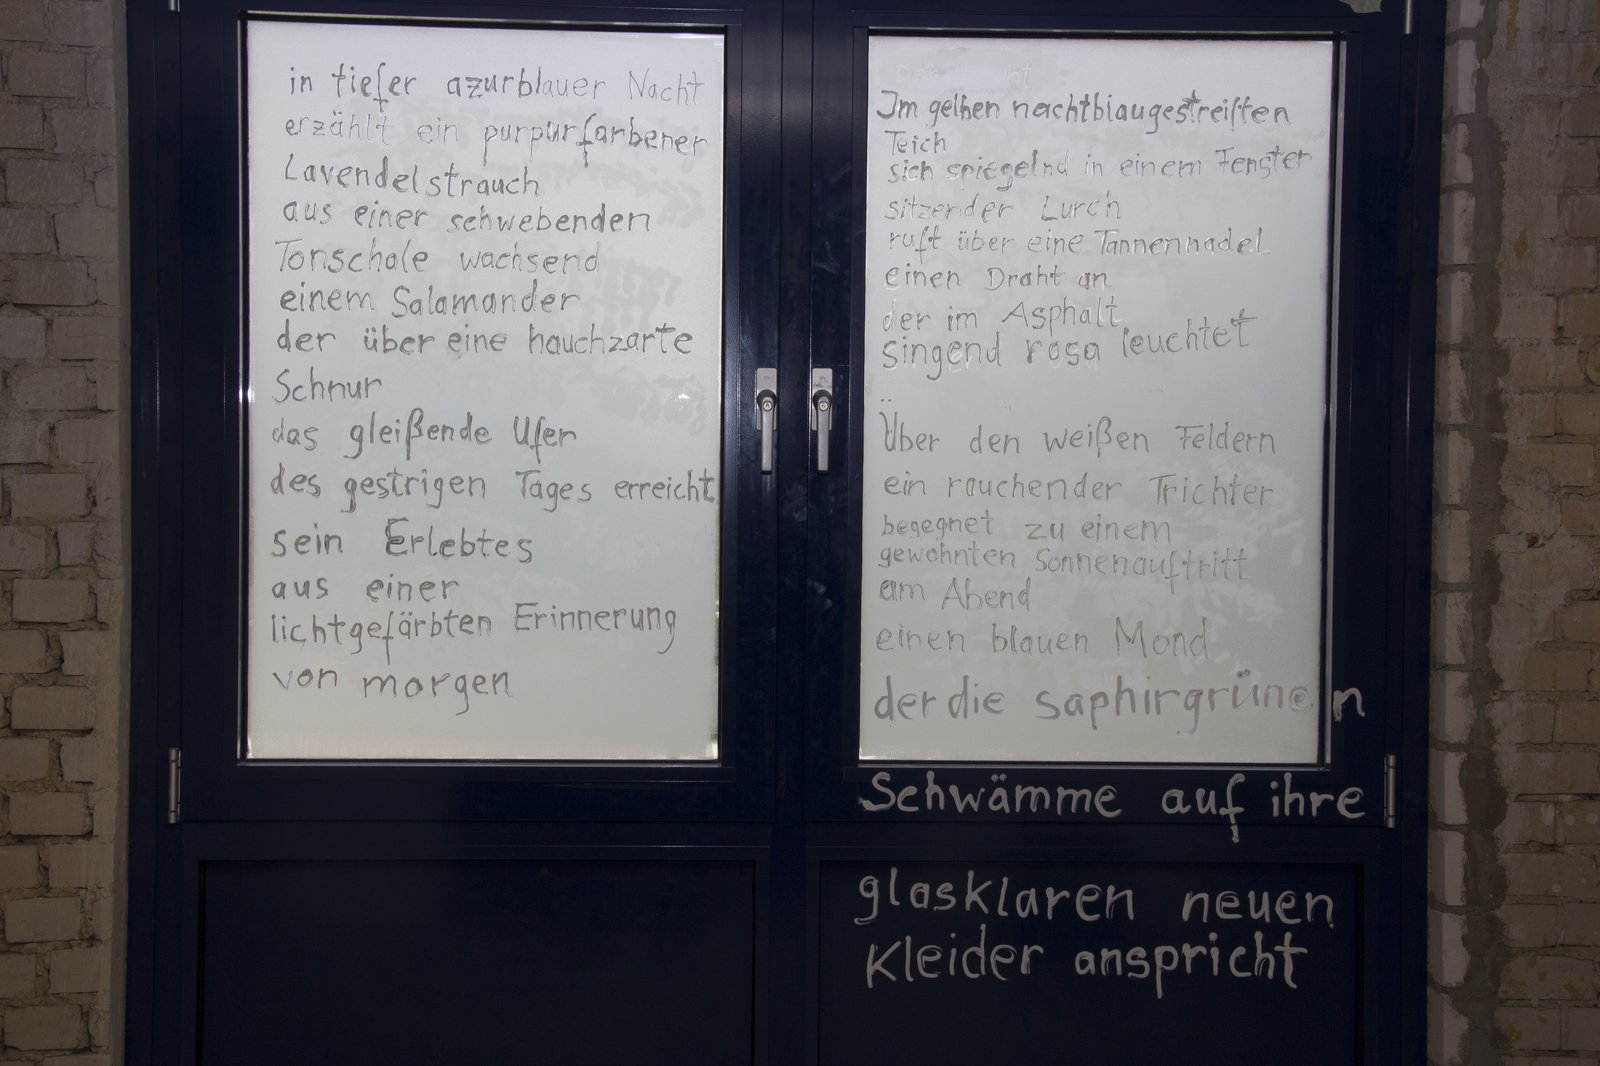 in tiefer azurblauer Nacht
erzählt ein purpurfarbener
Lavendelstrauch
aus einer schwebenden
Tonschale wachsend
einem Salamander
der über eine hauchzarte
Schnur
das gleißende Ufer
des gestrigen Tages erreicht
sein Erlebtes
aus einer
lichtgefärbten Erinnerung
von morgen
Im gelben nachtblaugestreiften
Teich
sich spiegelnd in einem Fenster
sitzender Lurch
ruft über eine Tannennadel
einen Draht an
der im Asphalt
singend rosa leuchtet
Über den weißen Feldern
ein rauchender Trichter
begegnet zu einem
gewohnten Sonnenauftritt
am Abend
einen blauen Mond
der die saphirgrünen
Schwämme auf ihre
glasklaren neuen
Kleider anspricht